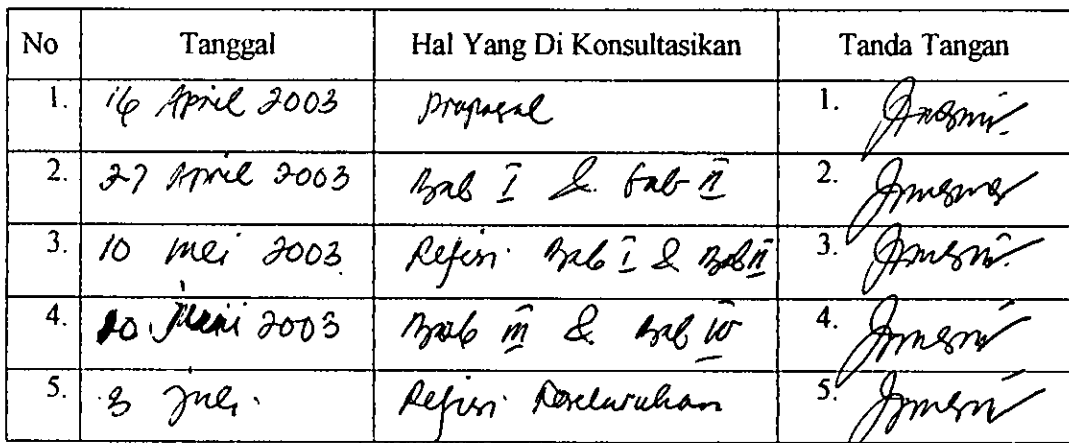 No Tanggal Hal Yang Di Konsultasikan Tanda Tangan
1. 16 April 2003 Proposal 1.
2. 27 April 2003 Bab I & Bab II 2.
3. 10 Mei 2003 Refisi Bab I & Bab II 3.
4. 20 Juni 2003 Bab III & Bab IV 4.
5. 3 Juli. Refisi Keseluruhan 5.